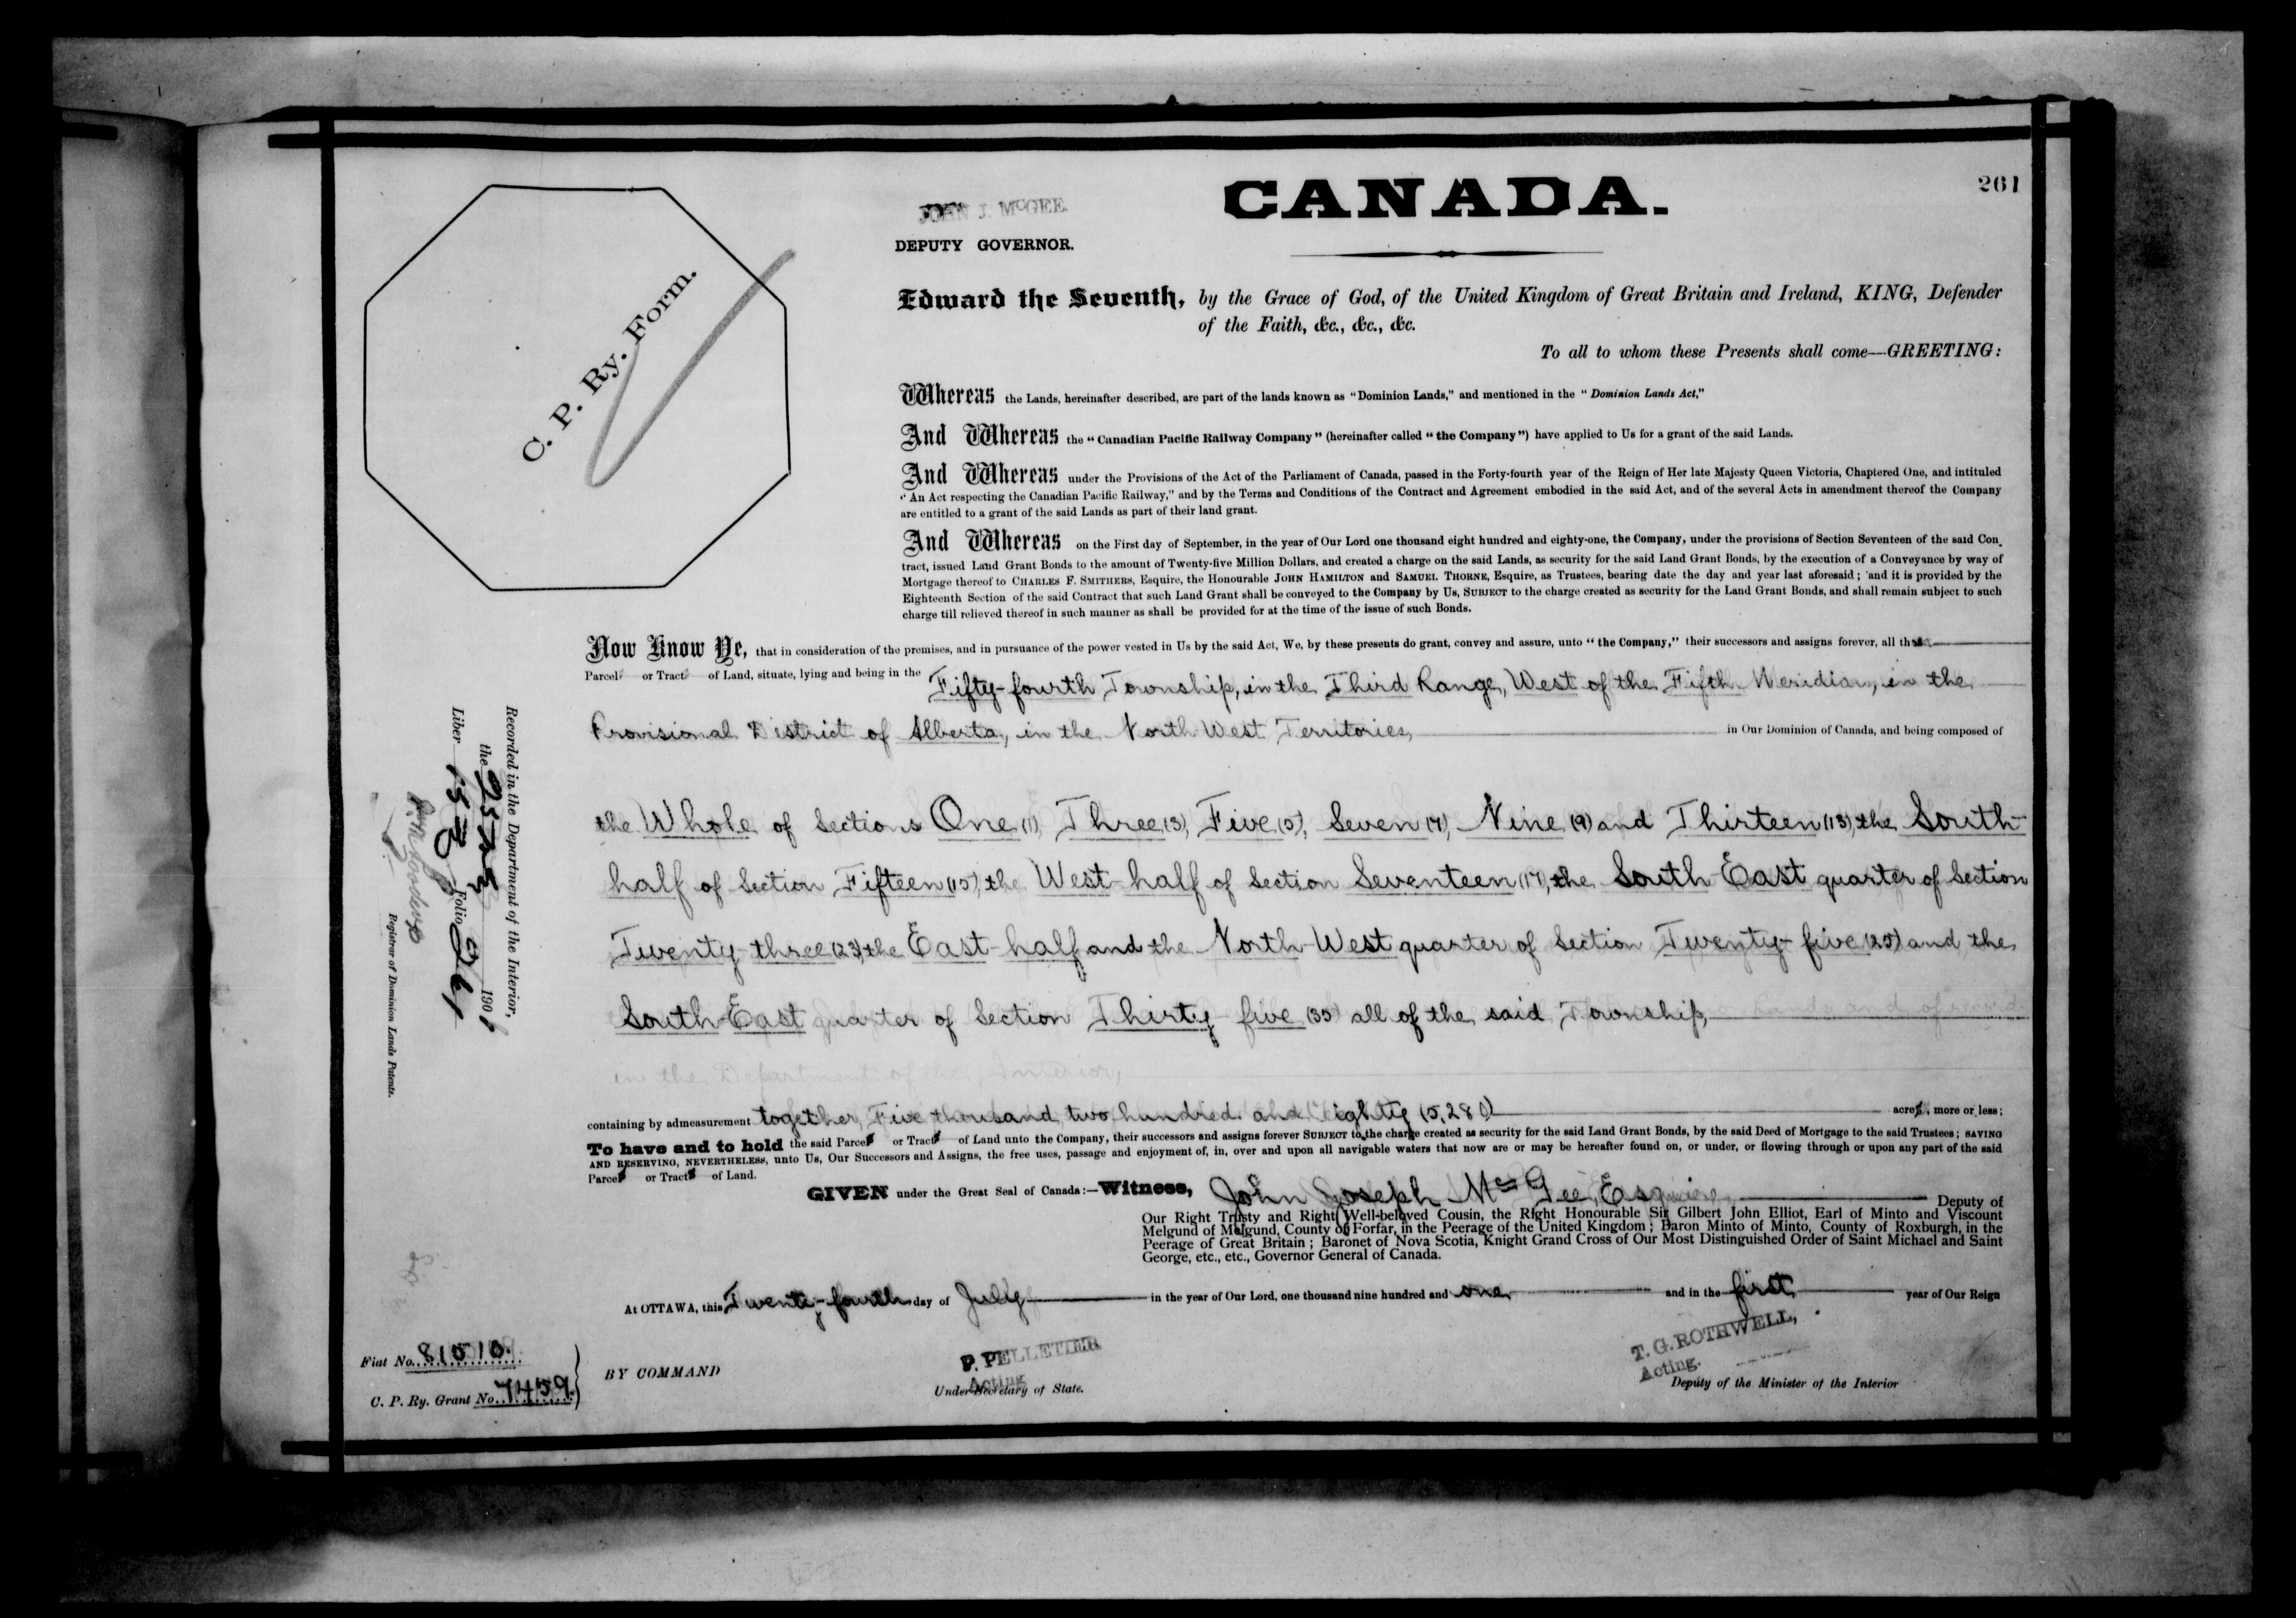 261
JOHN J. McGEE.
DEPUTY GOVERNOR.
CANADA.
C. P. Ry. Form.
Edward the Seventh, by the Grace of God, of the United Kingdom of Great Britain and Ireland, KING, Defender
of the Faith, &c., &c., &c.
To all to whom these Presents shall come—GREETING:
Whereas the Lands, hereinafter described, are part of the lands known as "Dominion Lands," and mentioned in the "Dominion Lands Act,"
And Whereas the "Canadian Pacific Railway Company" (hereinafter called "the Company") have applied to Us for a grant of the said Lands.
And Whereas under the Provisions of the Act of the Parliament of Canada, passed in the Forty-fourth year of the Reign of Her late Majesty Queen Victoria, Chaptered One, and intituled
"An Act respecting the Canadian Pacific Railway," and by the Terms and Conditions of the Contract and Agreement embodied in the said Act, and of the several Acts in amendment thereof the Company
are entitled to a grant of the said Lands as part of their land grant.
And Whereas on the First day of September, in the year of Our Lord one thousand eight hundred and eighty-one, the Company, under the provisions of Section Seventeen of the said Con-
tract, issued Land Grant Bonds to the amount of Twenty-five Million Dollars, and created a charge on the said Lands, as security for the said Land Grant Bonds, by the execution of a Conveyance by way of
Mortgage thereof to CHARLES F. SMITHERS, Esquire, the Honourable JOHN HAMILTON and SAMUEL THORNE, Esquire, as Trustees, bearing date the day and year last aforesaid; and it is provided by the
Eighteenth Section of the said Contract that such Land Grant shall be conveyed to the Company by Us, SUBJECT to the charge created as security for the Land Grant Bonds, and shall remain subject to such
charge till relieved thereof in such manner as shall be provided for at the time of the issue of such Bonds.
Now Know Ye, that in consideration of the premises, and in pursuance of the power vested in Us by the said Act, We, by these presents do grant, convey and assure, unto "the Company," their successors and assigns forever, all those
Parcels or Tracts of Land, situate, lying and being in the Fifty-fourth Township, in the Third Range, West of the Fifth Meridian, in the
Provisional District of Alberta, in the North West Territories, in Our Dominion of Canada, and being composed of
the Whole of Sections One (1), Three (3), Five (5), Seven (7), Nine (9) and Thirteen (13), the South-
half of Section Fifteen (15), the West-half of Section Seventeen (17), the South East quarter of Section
Twenty-three (23), the East-half and the North-West quarter of Section Twenty-five (25) and the
South-East quarter of Section Thirty-five (35) all of the said Township,
in the Department of the Interior,
containing by admeasurement together Five thousand two hundred and Eighty (5,280) acres, more or less;
To have and to hold the said Parcels or Tracts of Land unto the Company, their successors and assigns forever SUBJECT to the charge created as security for the said Land Grant Bonds, by the said Deed of Mortgage to the said Trustees; SAVING
AND RESERVING, NEVERTHELESS, unto Us, Our Successors and Assigns, the free uses, passage and enjoyment of, in, over and upon all navigable waters that now are or may be hereafter found on, or under, or flowing through or upon any part of the said
Parcels or Tracts of Land.
GIVEN under the Great Seal of Canada:—Witness, John Joseph McGee, Esquire, Deputy of
Our Right Trusty and Right Well-beloved Cousin, the Right Honourable Sir Gilbert John Elliot, Earl of Minto and Viscount
Melgund of Melgund, County of Forfar, in the Peerage of the United Kingdom; Baron Minto of Minto, County of Roxburgh, in the
Peerage of Great Britain; Baronet of Nova Scotia, Knight Grand Cross of Our Most Distinguished Order of Saint Michael and Saint
George, etc., etc., Governor General of Canada.
At OTTAWA, this Twenty-fourth day of July in the year of Our Lord, one thousand nine hundred and one, and in the first year of Our Reign
BY COMMAND
P. PELLETIER
Acting
Under-Secretary of State.
T. G. ROTHWELL,
Acting.
Deputy of the Minister of the Interior
Fiat No. 81510.
C. P. Ry. Grant No. 7459.
Recorded in the Department of the Interior,
the 1901
Liber 153 Folio 261
Registrar of Dominion Lands Patents.